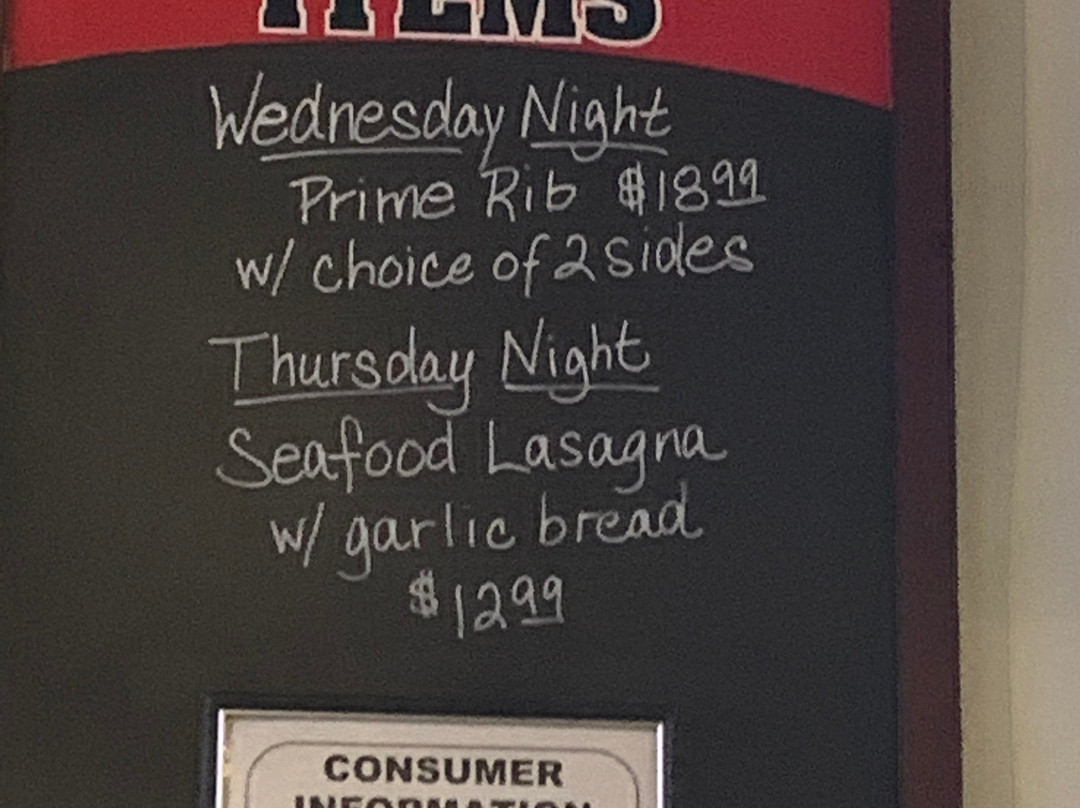 ITEMS
Wednesday Night
Prime Rib $18.99
w/ choice of 2 sides
Thursday Night
Seafood Lasagna
w/ garlic bread
$12.99
CONSUMER
INFORMATION